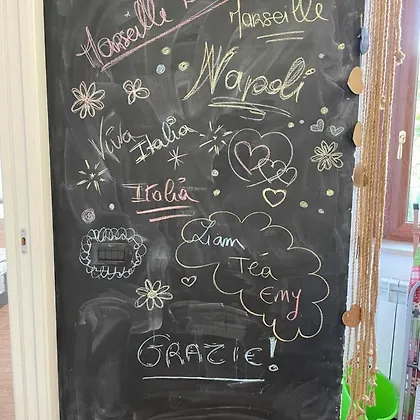 Marseille
Marseille
Napoli
Viva Italia
Italia
Liam
Téa
Emy
GRAZIE!